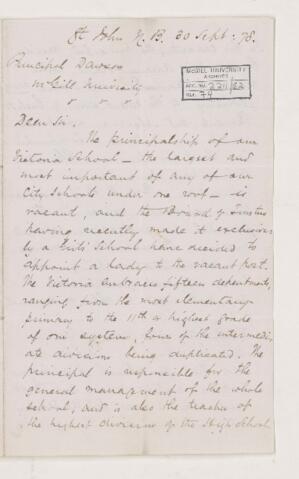 St John N.B. 30 Sept: 78.
Principal Dawson
McGill University
Dear Sir.
McGILL UNIVERSITY
ARCHIVES
ACC. NO. 2211/62
REF. 74
The principalship of our
Victoria School – the largest and
most important of any of our
City Schools under one roof – is
vacant, and the Board of Trustees
having recently made it exclusively
a Girls' School have decided to
appoint a lady to the vacant post.
The Victoria embraces fifteen departments,
ranging from the most elementary
primary to the 11th or highest grade
of our system, four of the intermedi-
ate divisions being duplicated. The
principal is responsible for the
general management of the whole
school, and is also the teacher of
the highest divisions of the High School